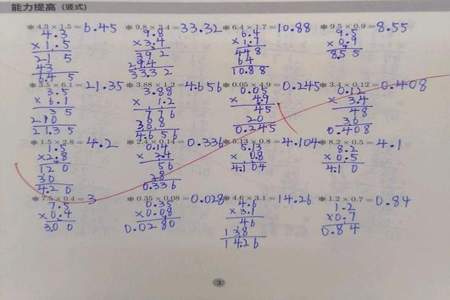 能力提高（竖式）
※4.3×1.5=6.45 ※9.8×3.4=33.32 ※6.4×1.7=10.88 ※9.5×0.9=8.55
4.3 9.8 6.4 9.5
×1.5 ×3.4 ×1.7 ×0.9
215 392 448 855
43 294 64
6.45 33.32 10.88
※3.5×6.1=21.35 ※3.88×1.2=4.656 ※0.05×4.9=0.245 ※3.4×0.12=0.408
3.5 3.88 0.05 0.12
×6.1 ×1.2 ×4.9 ×3.4
35 776 45 48
210 388 20 36
21.35 4.656 0.245 0.408
※1.5×2.8=4.2 ※2.4×0.14=0.336 ※5.13×0.8=4.104 ※8.2×0.5=4.1
1.5 0.14 5.13 8.2
×2.8 ×2.4 ×0.8 ×0.5
120 56 4.104 4.10
30 28
4.20 0.336
※7.5×0.4=3 ※0.35×0.08=0.028 ※4.6×3.1=14.26 ※1.2×0.7=0.84
7.5 0.35 4.6 1.2
×0.4 ×0.08 ×3.1 ×0.7
3.00 0.0280 46 0.84
138
14.26
3